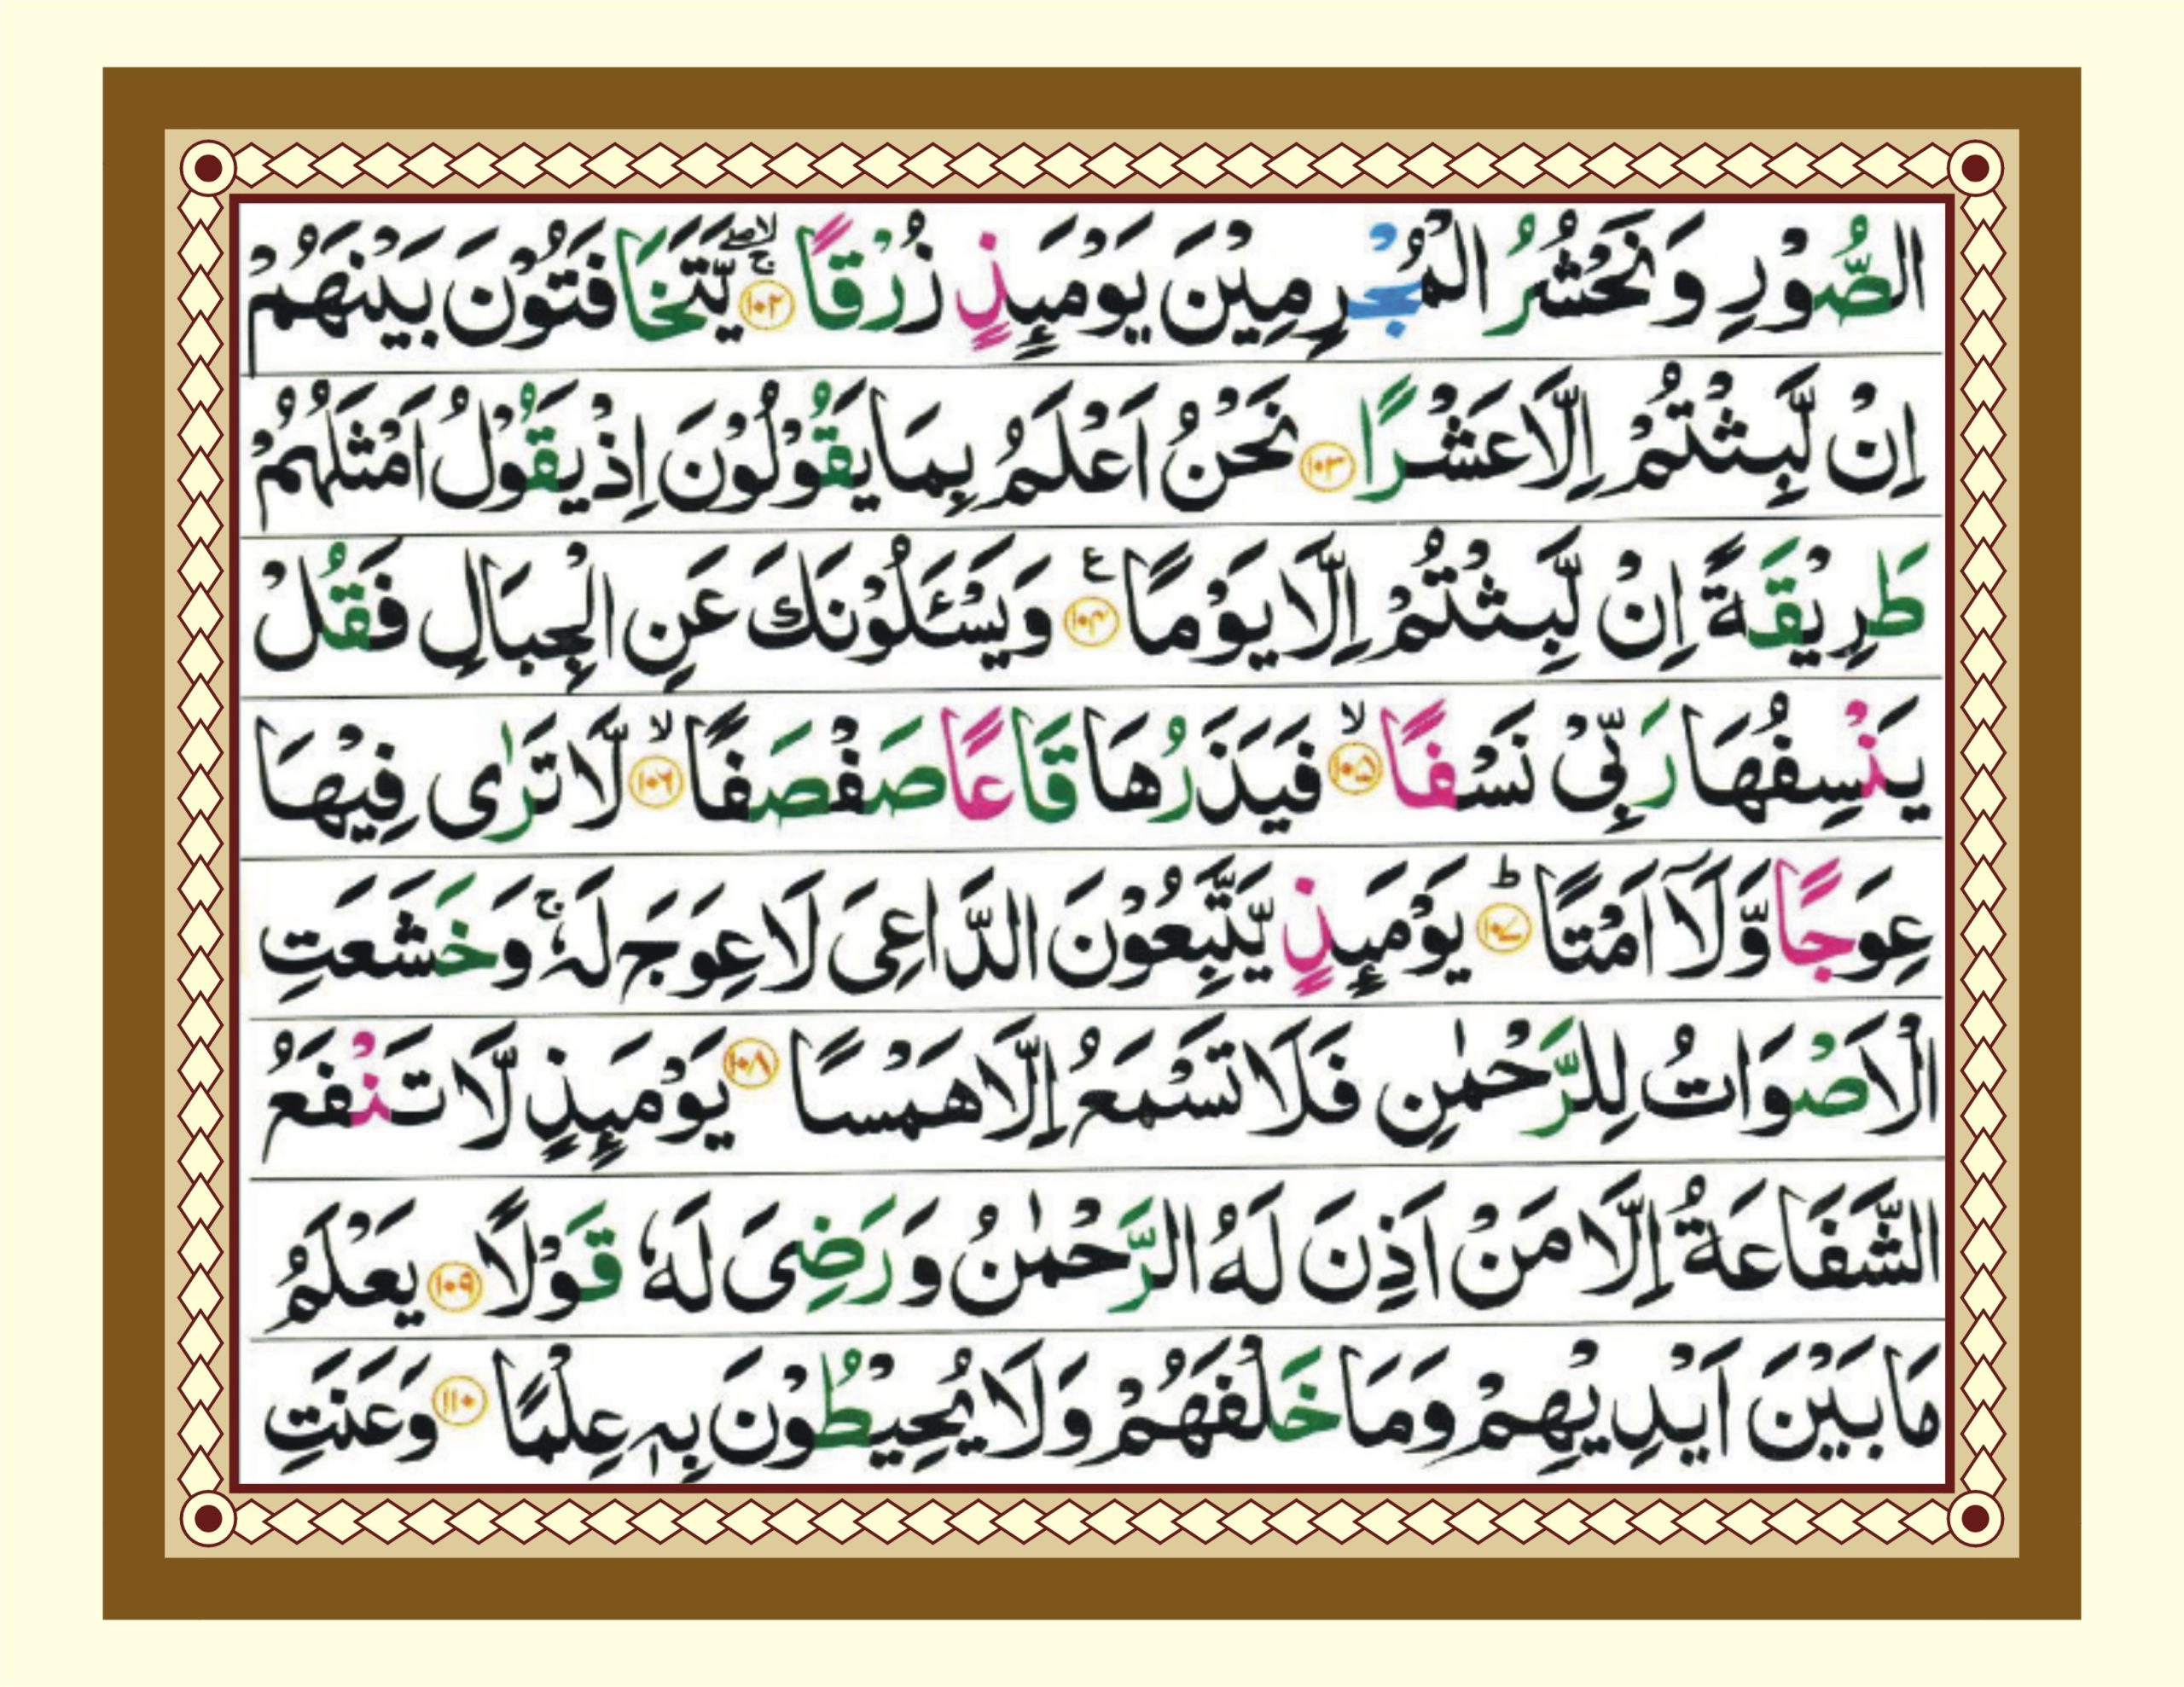 الصُّوۡرِ وَنَحۡشُرُ الۡمُجۡرِمِيۡنَ يَوۡمَٮِٕذٍ زُرۡقًا ۖۚ‏ ﴿۱۰۲﴾ يَّتَخَافَتُوۡنَ بَيۡنَهُمۡ
اِنۡ لَّبِثۡتُمۡ اِلَّا عَشۡرًا ﴿۱۰۳﴾ نَحۡنُ اَعۡلَمُ بِمَا يَقُوۡلُوۡنَ اِذۡ يَقُوۡلُ اَمۡثَلُهُمۡ
طَرِيۡقَةً اِنۡ لَّبِثۡتُمۡ اِلَّا يَوۡمًا ﴿۱۰۴﴾ ع وَيَسۡـَٔلُوۡنَكَ عَنِ الۡجِبَالِ فَقُلۡ
يَنۡسِفُهَا رَبِّىۡ نَسۡفًا ۙ ﴿۱۰۵﴾ فَيَذَرُهَا قَاعًا صَفۡصَفًا ۙ ﴿۱۰۶﴾ لَّا تَرٰى فِيۡهَا
عِوَجًا وَّلَاۤ اَمۡتًا ؕ ﴿۱۰۷﴾ يَوۡمَٮِٕذٍ يَّتَّبِعُوۡنَ الدَّاعِىَ لَا عِوَجَ لَهٗ ۚ وَخَشَعَتِ
الۡاَصۡوَاتُ لِلرَّحۡمٰنِ فَلَا تَسۡمَعُ اِلَّا هَمۡسًا ﴿۱۰۸﴾ يَوۡمَٮِٕذٍ لَّا تَنۡفَعُ
الشَّفَاعَةُ اِلَّا مَنۡ اَذِنَ لَهُ الرَّحۡمٰنُ وَرَضِىَ لَهٗ قَوۡلًا ﴿۱۰۹﴾ يَعۡلَمُ
مَا بَيۡنَ اَيۡدِيۡهِمۡ وَمَا خَلۡفَهُمۡ وَلَا يُحِيۡطُوۡنَ بِهٖ عِلۡمًا ﴿۱۱۰﴾ وَعَنَتِ